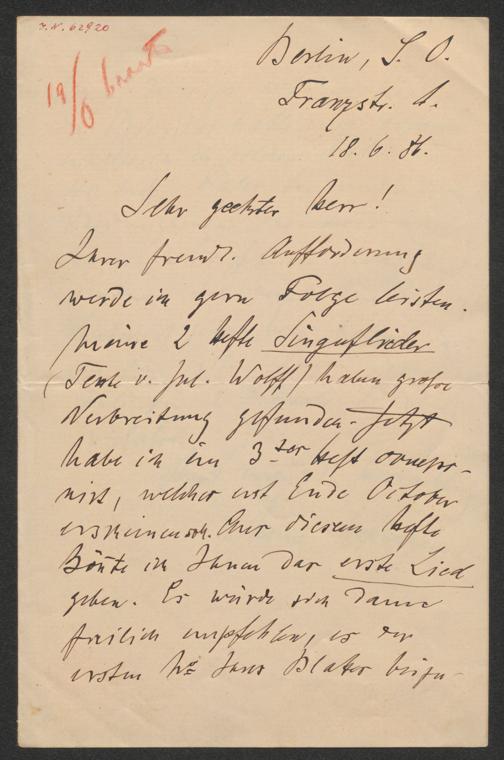 I.N. 62920
19/6 beantw
Berlin, S. O.
Franzstr. 1.
18. 6. 86.
Sehr geehrter Herr!
Ihrer freundl. Aufforderung
werde ich gern Folge leisten.
Meine 2 Hefte Singuflieder
(Texte v. Jul. Wolff) haben große
Verbreitung gefunden. Jetzt
habe ich ein 3tes Heft compo-
nirt, welches erst Ende October
erscheinen soll. Aus diesem Hefte
könnte ich Ihnen das erste Lied
geben. Es würde sich dann
freilich empfehlen, es der
ersten No Ihres Blattes beizu-